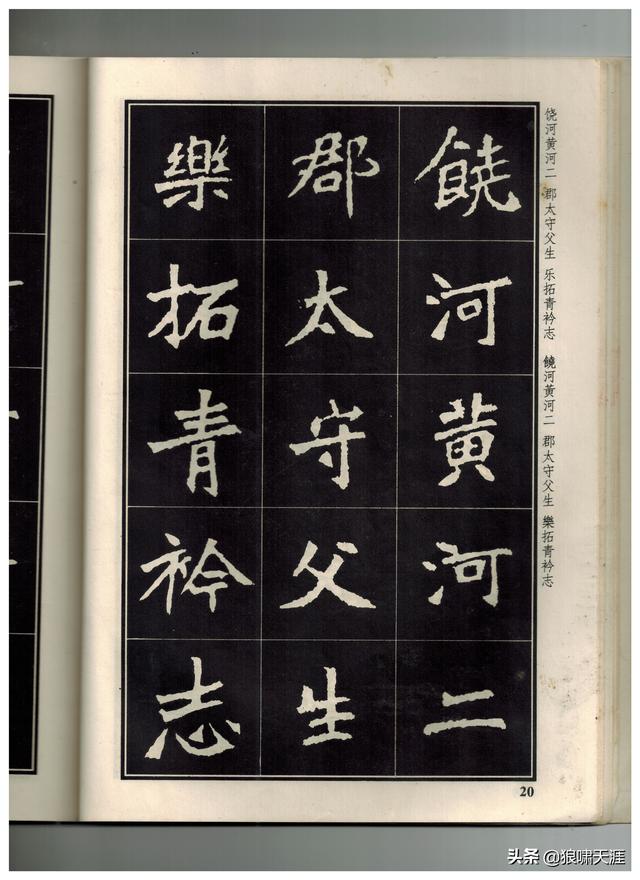 饒河黄河二
郡太守父生
樂拓青衿志
饶河黄河二 郡太守父生 乐拓青衿志 饒河黃河二 郡太守父生 樂拓青衿志
20
头条 @狼啸天涯